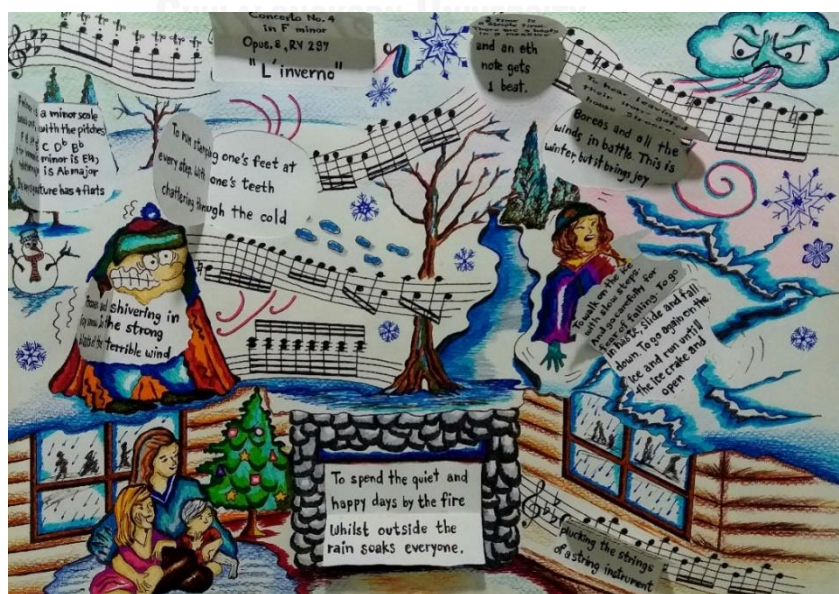 CHULALONGKORN UNIVERSITY
Concerto No. 4
in F minor
Opus, 8, RV 297
"L'inverno"
and an 8th
note gets
1 beat.
To hear leaving
their iron-gated
house Sirocco,
Boreas and all the
winds, in battle. This is
winter, but it brings joy
a minor scale
with the pitches
C Db Eb
minor is E4,
is Ab major
signature has 4 flats
To run stamping one's feet at
every step, with one's teeth
chattering through the cold
Frozen and shivering in
the strong
blasts of the terrible wind
To walk on the ice
with slow steps.
And go carefully for
fear of falling. To go
in haste, slide and fall
down. To go again on the
ice and run until
the ice crake and
open
To spend the quiet and
happy days by the fire
Whilst outside the
rain soaks everyone.
plucking the strings
of a string instrument